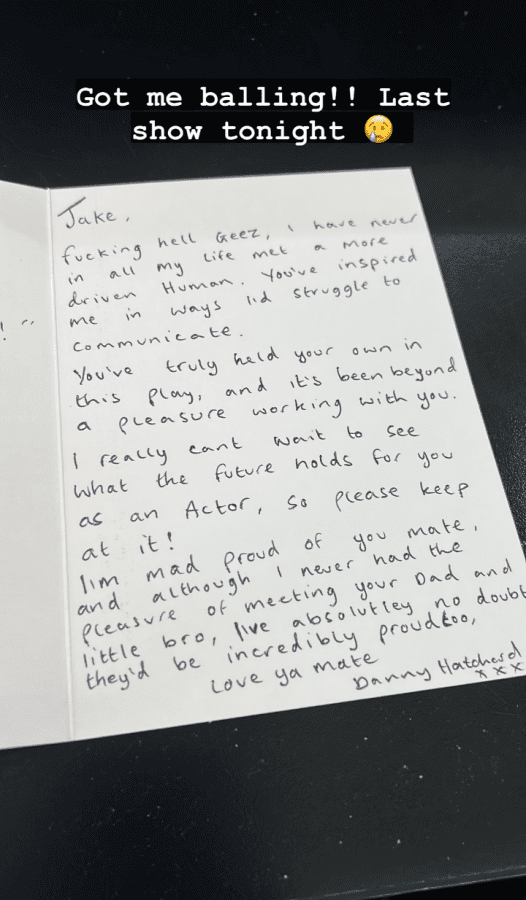 Got me balling!! Last
show tonight 😢
Jake,
fucking hell Geez, I have never
in all my life met a more
driven Human. You've inspired
me in ways I'd struggle to
communicate.
You've truly held your own in
this play, and it's been beyond
a pleasure working with you.
I really cant wait to see
what the future holds for you
as an Actor, so please keep
at it!
I'im mad proud of you mate,
and although I never had the
pleasure of meeting your Dad and
little bro, I've absolutley no doubt
they'd be incredibly proud too,
Love ya mate
Danny Hatchard
x x x